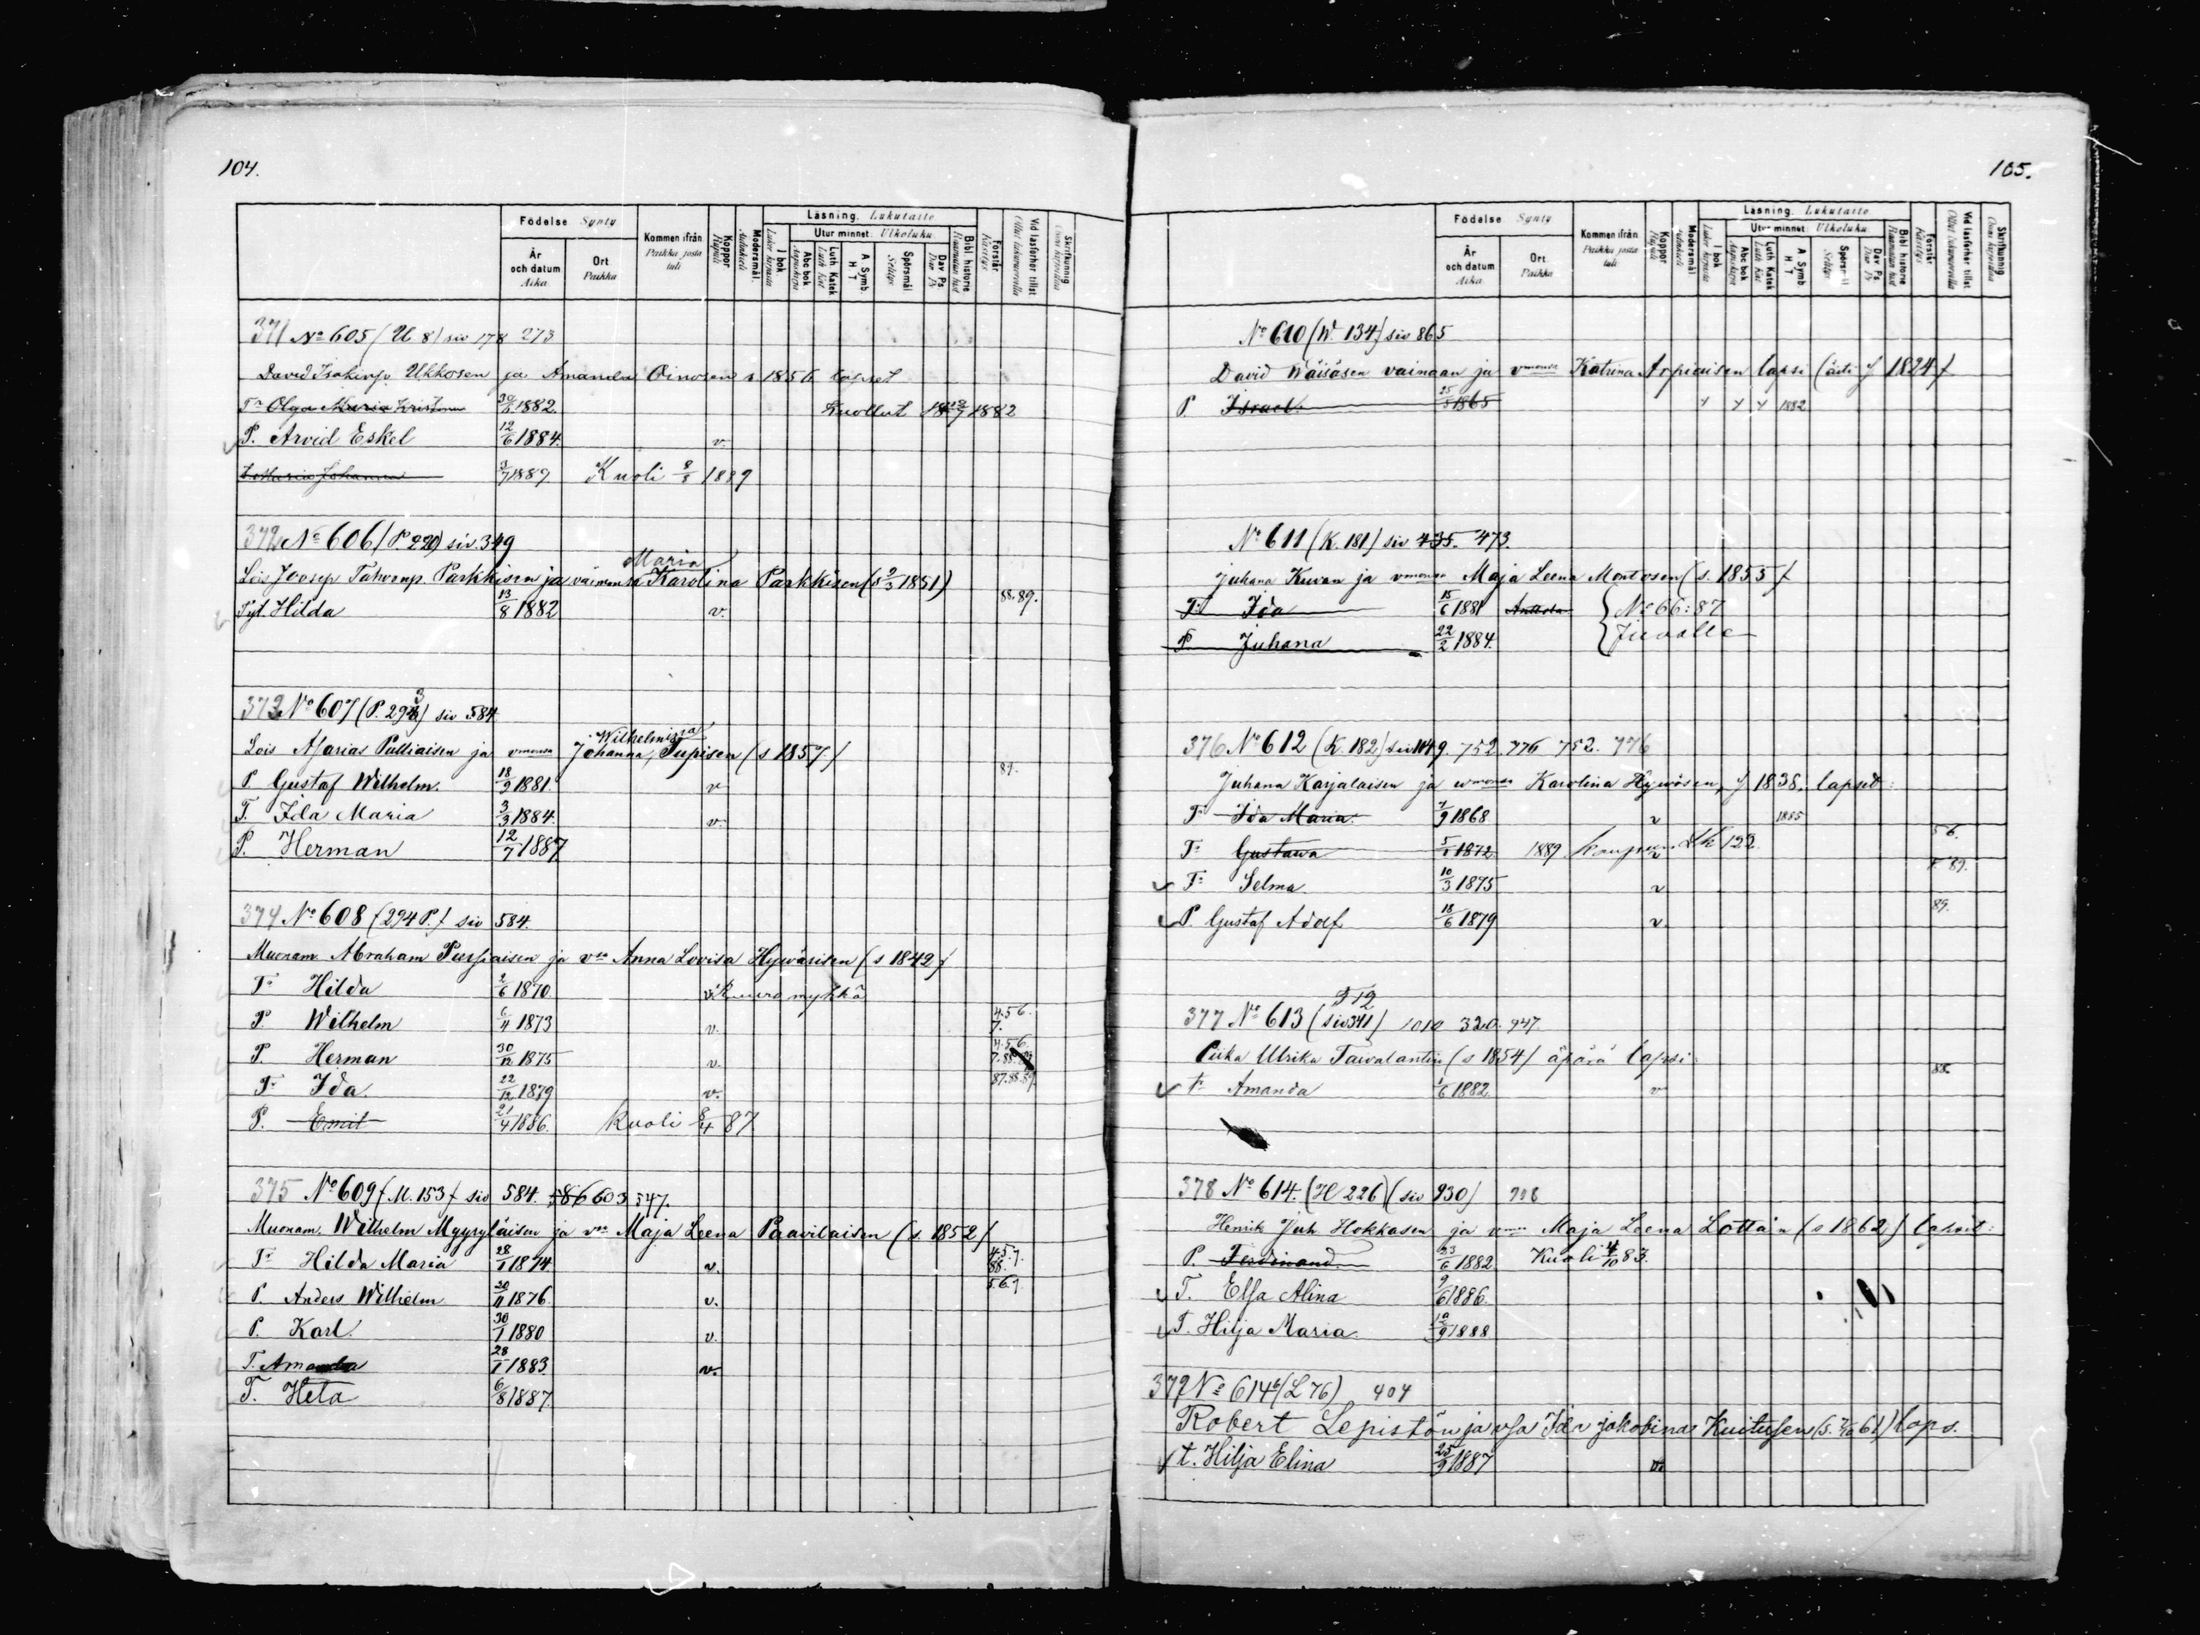 104.
Födelse Synty
År och datum Aika
Ort Paikka
Kommen ifrån Paikka josta tuli
Koppor Rupuli
Modersmål. Äidinkieli
Läsning. Lukutaito
I bok
Utur minnet. Ulkoluku
Abc bok Aapiskirja
Luth Katek Luth Kat
A Symb. H T
Spörsmål Selitys
Dav Ps Dav Ps
Bibl. historie
Förstår Käsitys
Vid läsförhör tillst
Skrifkunnig
371 No 605 (U 8) siv 178 273
David Isakinp. Ukkosen ja Amanda Oinosen s 1856 lapset
Tr Olga Maria 30 1882. Kuollut 1882
P. Arvid Eskel 12/6 1884. v.
T. Maria Johanna 3/7 1889 Kuoli 8/8 1889
372 No 606 (P. 220) siv. 349
Maria
Lois Joosep Tahvonp. Parkkisen ja vaimonsa Karolina Parkkisen (s 9/3 1851)
88. 89.
Tyt. Hilda 13/8 1882 v.
373 No 607 (P. 293) siv 584
Wilhelmina
Lois Matias Pulliaisen ja vmonsa Johanna, Supisen (s 1857)
89.
P Gustaf Wilhelm. 18/9 1881. v
T. Ida Maria 3/3 1884. v.
P. Herman 12/7 1887
374 No 608 (294 P.) siv 584.
Muonam. Abraham Puupiaisen ja vsa Anna Lovisa Hyvärisen (s 1842)
Tr Hilda 2/6 1870. v. Kuuro mykkä
P. Wilhelm 6/4 1873 v. 4.5.6. 7.
P. Herman 30/12 1875 v. 4.5.6.
Tr Ida. 22/12 1879 v. 87.88.89
P. Emil 21/4 1886. Kuoli 8/4 87
375 No 609 (M. 153) siv 584. 586 603 547.
Muonam. Wilhelm Myyryläisen ja vsa Maja Leena Paavilaisen (s. 1852)
Tr Hilda Maria 28/1 1874. v. 4.5.7. 88.
P. Anders Wilhelm 30/11 1876. v. 5.6.7.
P. Karl. 30/1 1880 v.
T. Amanda 28/1 1883. v.
T. Heta 6/8 1887.
105.
Födelse Synty
År och datum Aika
Ort Paikka
Kommen ifrån Paikka josta tuli
Koppor Rupuli
Modersmål
Läsning. Lukutaito
I bok
Utur minnet. Ulkoluku
Abc bok Aapiskirja
Luth Katek Luth Kat
A Symb H T
Spörsmål Selitys
Dav Ps Dav Ps
Bibl historie
Förstår Käsitys
Vid läsförhör tillst
Skrifkunnig
No 610 (W. 134) siv 865
David Wäisäsen vainaan ja vmonsa Katrina Arpiaisen lapsi (äiti s 1824)
P Israel. 25/5 1865 1882
No 611 (K. 181) siv 435. 473.
Juhana Kuvan ja vmonsa Maja Leena Montosen (s. 1855)
T. Ida 15/6 1881 Anttola No 66: 87
P. Juhana 22/2 1884. Juvalle
376 No 612 (K. 182) siv 1049. 752 776 752. 776
Juhana Karjalaisen ja vmonsa Karolina Hyvösen, s 1838. lapset:
Tr Ida Maria. 7/9 1868. v 1885
5 6.
Tr Gustava 5 1872. 1889 kaupun v 122
89.
Tr Selma. 10/3 1875 v
89.
P. Gustaf Adolf 18/6 1879 v.
512
377 No 613 (siv 341) 1010 320. 947.
Piika Ulrika Taivalantin (s 1854) äpärä lapsi:
88.
tr Amanda 1/6 1882. v
378 No 614. (H 226) (siv 930) 908
Henrik Juh. Hokkasen ja vmon Maja Leena Lottan (s 1862) lapset:
P. Ferdinand. 23/6 1882 Kuoli 4/10 83.
T. Elsa Alina 9/6 1886.
T. Hilja Maria. 19/9 1888
379 No 614b (L 76) 404
Robert Lepistön ja vsa Ida jakobina Kuitusen (s. 7/10 61) laps.
t. Hilja Elina 25/9 1887 v.